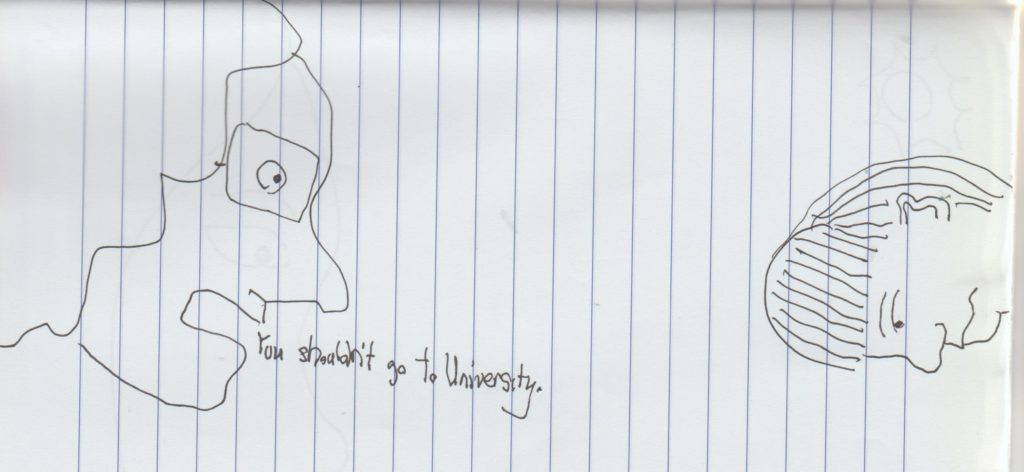 You shouldn't go to University.